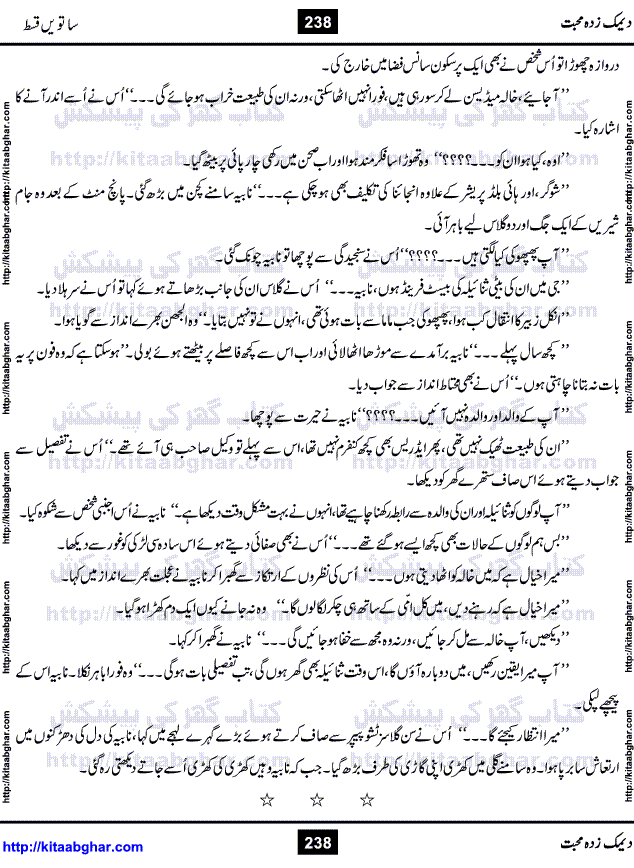 دیمک زدہ محبت 238 ساتویں قسط
دروازہ چھوڑا تو اُس شخص نے بھی ایک پر سکون سانس فضا میں خارج کی۔
’’آ جایئے، خالہ میڈیسن لے کر سو رہی ہیں، فوراً نہیں اٹھا سکتی، ورنہ ان کی طبیعت خراب ہو جائے گی۔۔۔‘‘ اُس نے اُسے اندر آنے کا
اشارہ کیا۔
’’اوہ، کیا ہوا ان کو۔۔۔؟؟؟؟‘‘ وہ تھوڑا سا فکر مند ہوا اور اب صحن میں رکھی چار پائی پر بیٹھ گیا۔
’’شوگر، اور ہائی بلڈ پریشر کے علاوہ انجائنا کی تکلیف بھی ہو چکی ہے۔۔۔‘‘ نابیہ سامنے کچن میں بڑھ گئی۔ پانچ منٹ کے بعد وہ جام
شیریں کے ایک جگ اور دو گلاس لیے باہر آئی۔
’’آپ پھپھو کی کیا لگتی ہیں۔۔۔؟؟؟؟‘‘ اُس نے سنجیدگی سے پوچھا تو نابیہ چونک گئی۔
’’جی میں ان کی بیٹی ثنائیلہ کی بیسٹ فرینڈ ہوں، نابیہ۔۔۔‘‘ اُس نے گلاس ان کی جانب بڑھاتے ہوئے کہا تو اُس نے سر ہلا دیا۔
’’انکل زبیر کا انتقال کب ہوا، پھپھو کی جب ماما سے بات ہوئی تھی، انہوں نے تو نہیں بتایا۔‘‘ وہ الجھن بھرے انداز سے گویا ہوا۔
’’کچھ سال پہلے۔۔۔‘‘ نابیہ برآمدے سے موڑھا اٹھا لائی اور اب اس سے کچھ فاصلے پر بیٹھتے ہوئے بولی۔ ’’ہو سکتا ہے کہ وہ فون پر یہ
بات نہ بتانا چاہتی ہوں۔‘‘ اُس نے بھی محتاط انداز سے جواب دیا۔
’’آپ کے والد اور والدہ نہیں آئیں۔۔۔؟؟؟؟‘‘ نابیہ نے حیرت سے پوچھا۔
’’ان کی طبیعت ٹھیک نہیں تھی، پھر ایڈریس بھی کچھ کنفرم نہیں تھا، اس سے پہلے تو وکیل صاحب ہی آئے تھے۔‘‘ اُس نے تفصیل سے
جواب دیتے ہوئے اس صاف ستھرے گھر کو دیکھا۔
’’آپ لوگوں کو ثنائیلہ اور ان کی والدہ سے رابطہ رکھنا چاہیے تھا، انہوں نے بہت مشکل وقت دیکھا ہے۔‘‘ نابیہ نے اُس اجنبی شخص سے شکوہ کیا۔
’’بس ہم لوگوں کے حالات بھی کچھ ایسے ہو گئے تھے۔۔۔‘‘ اُس نے بھی صفائی دیتے ہوئے اس سادہ سی لڑکی کو غور سے دیکھا۔
’’میرا خیال ہے کہ میں خالہ کو اٹھا دیتی ہوں۔۔۔‘‘ اُس کی نظروں کے ارتکاز سے گھبرا کر نابیہ نے عجلت بھرے انداز میں کہا۔
’’میرا خیال ہے کہ رہنے دیں، میں کل امّی کے ساتھ ہی چکر لگا لوں گا۔‘‘ وہ نہ جانے کیوں ایک دم کھڑا ہو گیا۔
’’دیکھیں، آپ خالہ سے مل کر جائیں، ورنہ وہ مجھ سے خفا ہو جائیں گی۔۔۔‘‘ نابیہ نے گھبرا کر کہا۔
’’آپ میرا یقین رکھیں، میں دوبارہ آؤں گا، اس وقت ثنائیلہ بھی گھر ہوں گی، تب تفصیلی بات ہو گی۔۔۔‘‘ وہ فوراً باہر نکلا۔ نابیہ اس کے
پیچھے لپکی۔
’’میرا انتظار کیجئے گا۔۔۔‘‘ اُس نے سن گلاسز ٹشو پیپر سے صاف کرتے ہوئے بڑے گہرے لہجے میں کہا، نابیہ کی دل کی دھڑکنوں میں
ارتعاش سا برپا ہوا۔ وہ سامنے گلی میں کھڑی اپنی گاڑی کی طرف بڑھ گیا۔ جب کہ نابیہ وہیں کھڑی کی کھڑی اسے جاتے دیکھتی رہ گئی۔
☆ ☆ ☆
http://kitaabghar.com 238 دیمک زدہ محبت
کتاب گھر کی پیشکش
http://kitaabghar.com